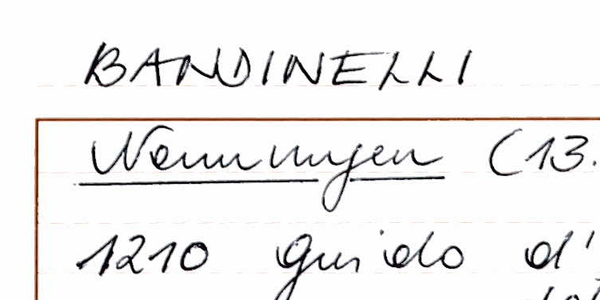 BANDINELLI
Nennungen (13.
1210 Guido d'